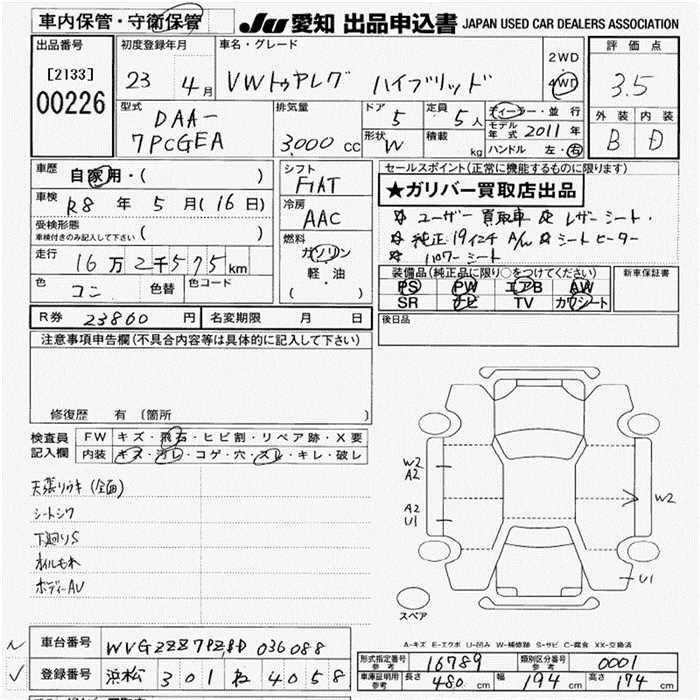 車内保管・守衛保管
JU 愛知 出品申込書 JAPAN USED CAR DEALERS ASSOCIATION
出品番号 初度登録年月 車名・グレード 評価点
[2133] 00226
23 4月 VWトゥアレグ ハイブリッド 2WD 4WD 3.5
型式 DAA-7PCGEA 排気量 3.000 cc ドア 5 定員 5人 ディーラー・並行
形状 W 積載 kg モデル年式 2011年
ハンドル 左・右
外装 内装
B D
車歴 自家用・( )
車検 R8年 5月(16日)
受検形態
車検付きのみ記入して下さい ( )
走行 16万2千575km
色 コン 色替 色コード
シフト FIAT
冷房 AAC
燃料 ガソリン
軽・油
( )
セールスポイント(正常に機能するものに限ります)
★ガリバー買取店出品
☆ユーザー買取車 ☆レザーシート・
☆純正19インチA/W ☆シートヒーター
☆パワーシート
装備品(純正品に限り○をつけてください) 新車保証書
PS PW エアB AW
SR ナビ TV カワシート
後日品
R券 23860円 名変期限 月 日
注意事項申告欄(不具合内容等は具体的に記入して下さい)
修復歴 有(箇所 )
検査員記入欄 FW キズ・飛石・ヒビ割・リペア跡・X要
内装 キズ・汚レ・コゲ・穴・スレ・キレ・破レ
天張りウキ(全面)
シートシワ
下廻りS
オイルモレ
ボディーAU
W2
A2
A2
U1
W2
U1
スペア
A-キズ E-エクボ U-凹み W-補修跡 S-サビ C-腐食 XX-交換済
車台番号 WVGZZZ7PZBD036088
登録番号 浜松 301 ね 4058
形式指定番号 参考 16789 類別区分番号 参考 0001
車庫証明用 参考 長さ 480cm 幅 194cm 高さ 174cm